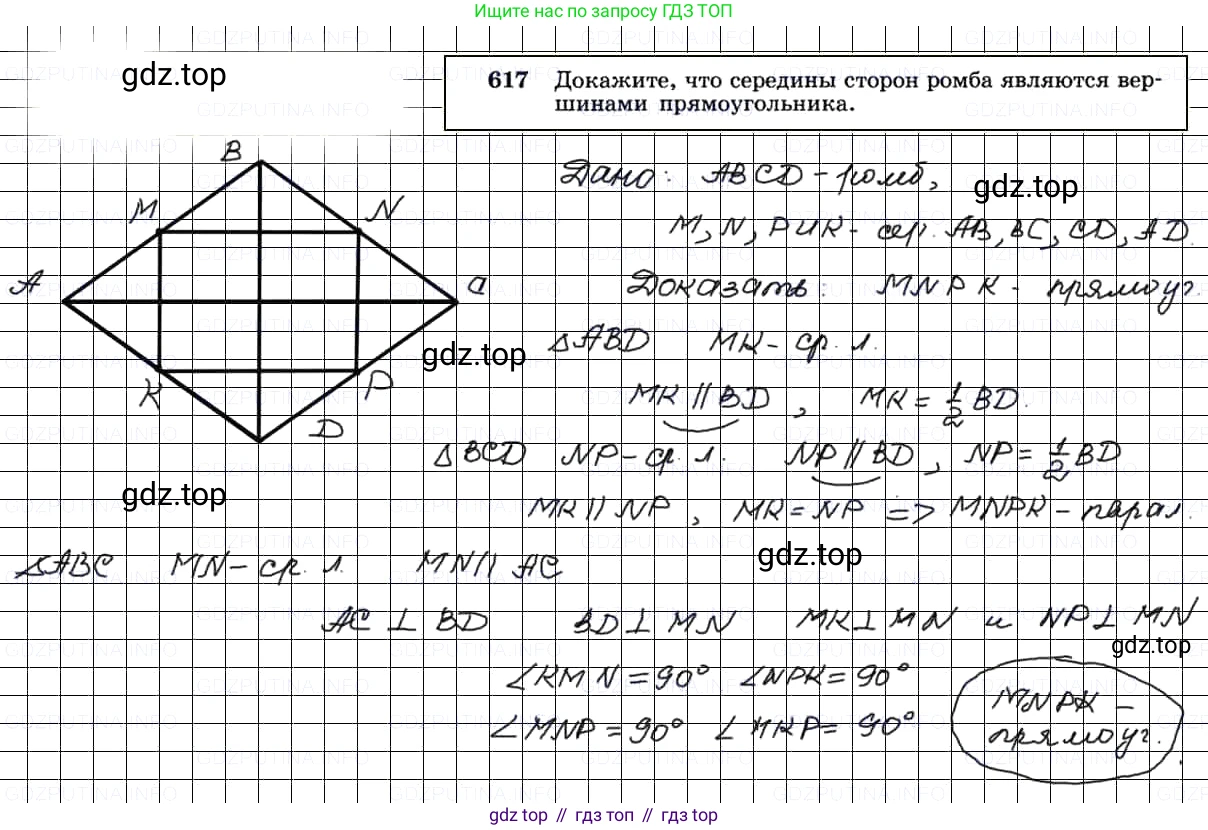 Ищите нас по запросу ГДЗ ТОП
gdz.top
617 Докажите, что середины сторон ромба являются вер-
шинами прямоугольника.
B
M
N
A
C
K
P
D
Дано: ABCD - ромб,
gdz.top
M, N, P и K - сер. AB, BC, CD, AD.
Доказать: MNPK - прямоуг.
△ABD MK - ср. л.
gdz.top
MK || BD, MK = 1/2 BD.
△BCD NP - ср. л. NP || BD, NP = 1/2 BD
gdz.top
MK || NP, MK = NP => MNPK - парал.
gdz.top
△ABC MN - ср. л. MN || AC
AC ⊥ BD BD ⊥ MN MK ⊥ MN и NP ⊥ MN
gdz.top
∠KMN = 90° ∠NPK = 90°
∠MNP = 90° ∠MKP = 90°
MNPK -
прямоуг.
gdz top // гдз топ // gdz top
GDZPUTINA.INFO